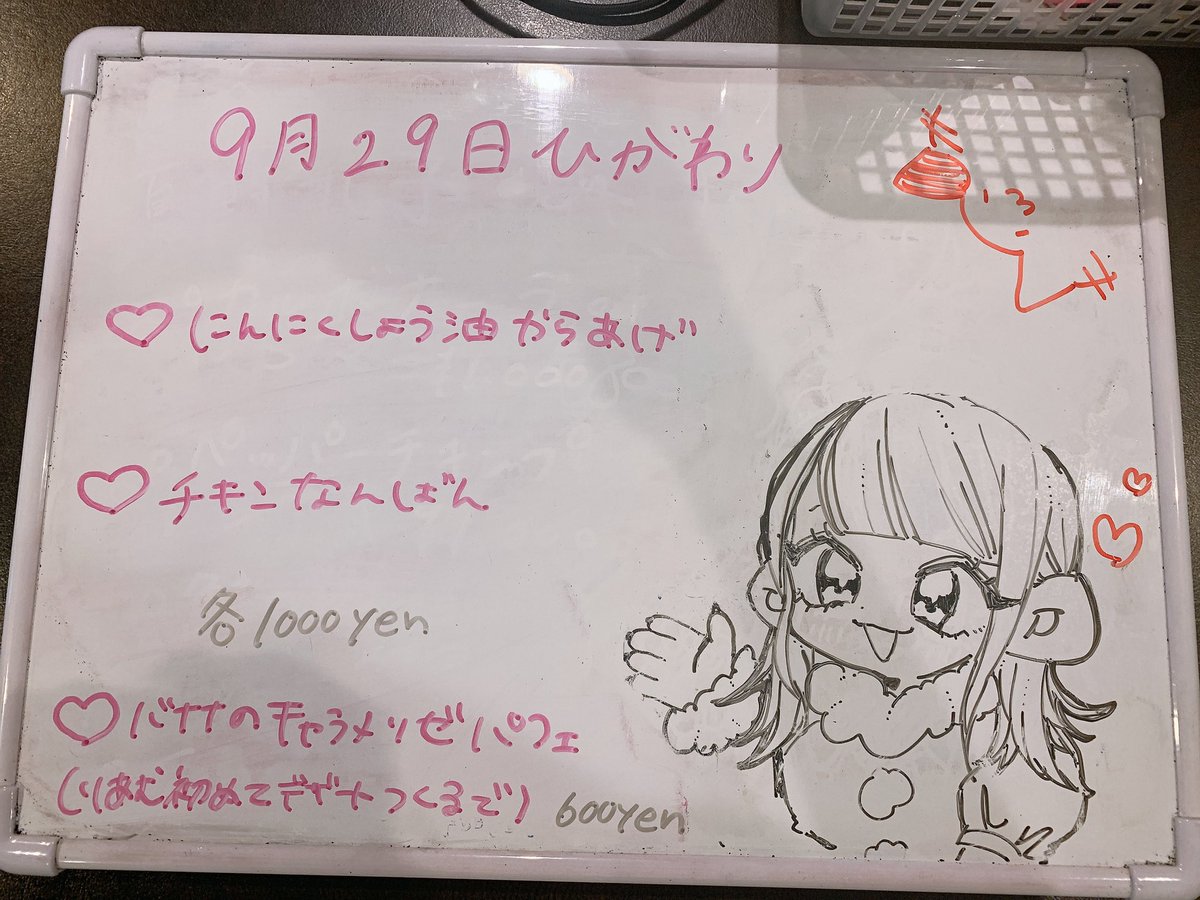 9月29日ひがわり
♡にんにくしょう油からあげ
♡チキンなんばん
各1000yen
♡バナナのキャラメリゼパフェ
(りあむ初めてデザートつくるまで)
600yen